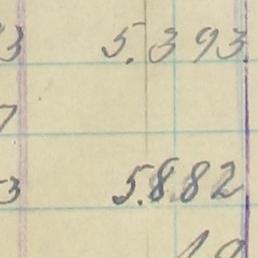 3 5.393
7
3 5.882